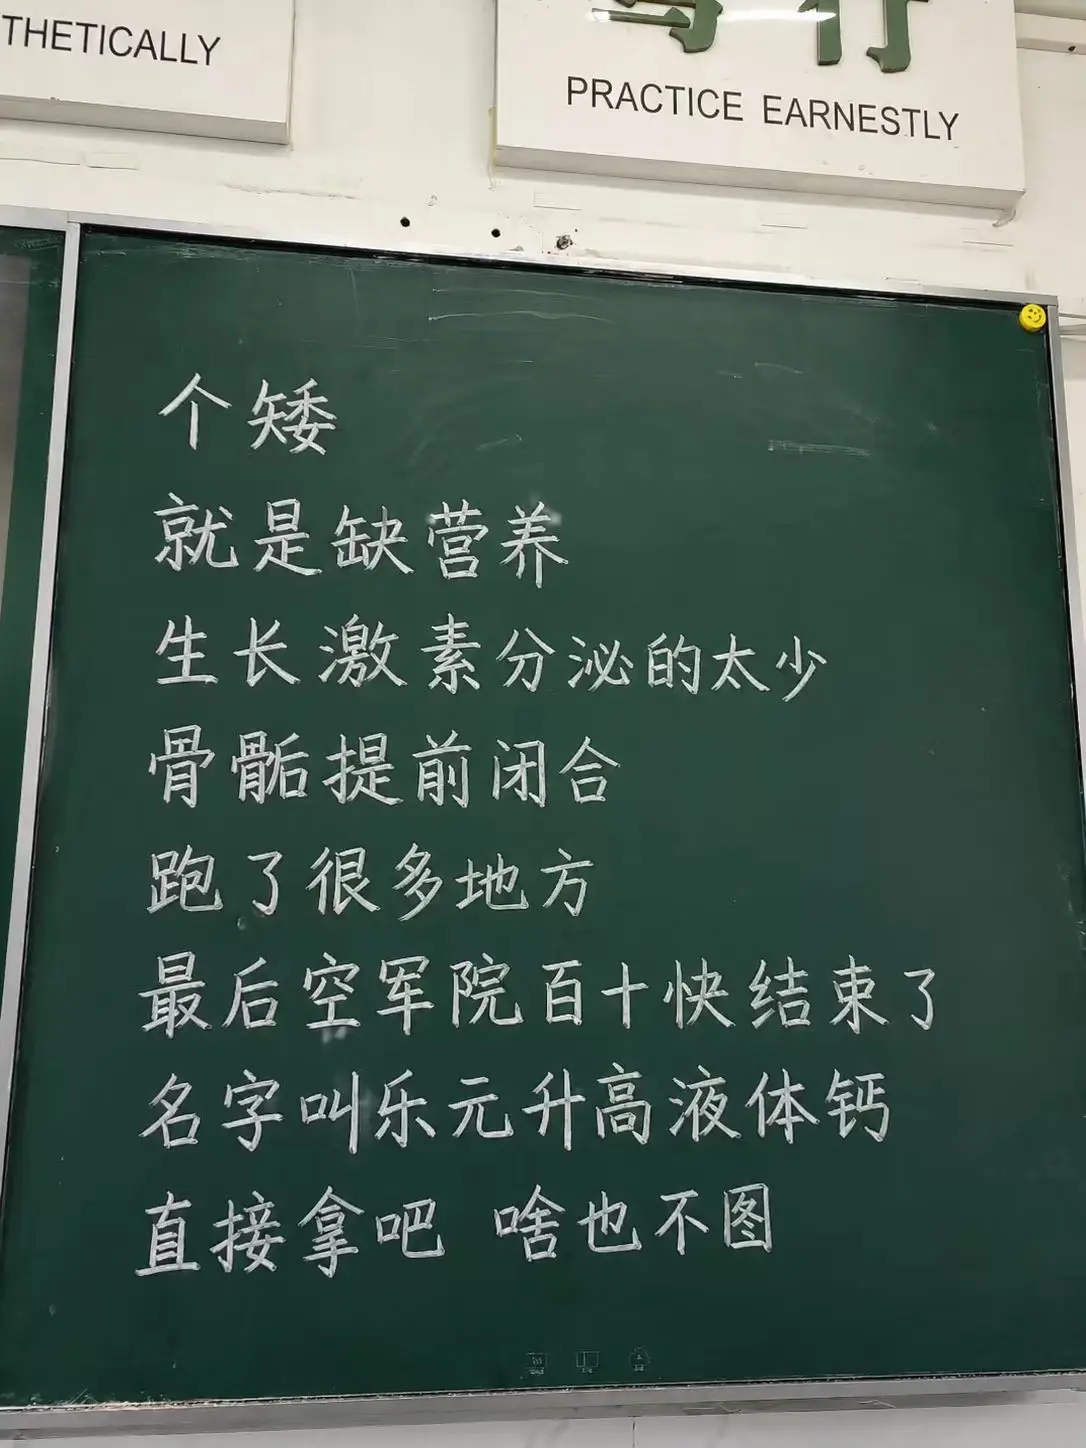 THETICALLY
PRACTICE EARNESTLY
个矮
就是缺营养
生长激素分泌的太少
骨骺提前闭合
跑了很多地方
最后空军院百十快结束了
名字叫乐元升高液体钙
直接拿吧 啥也不图